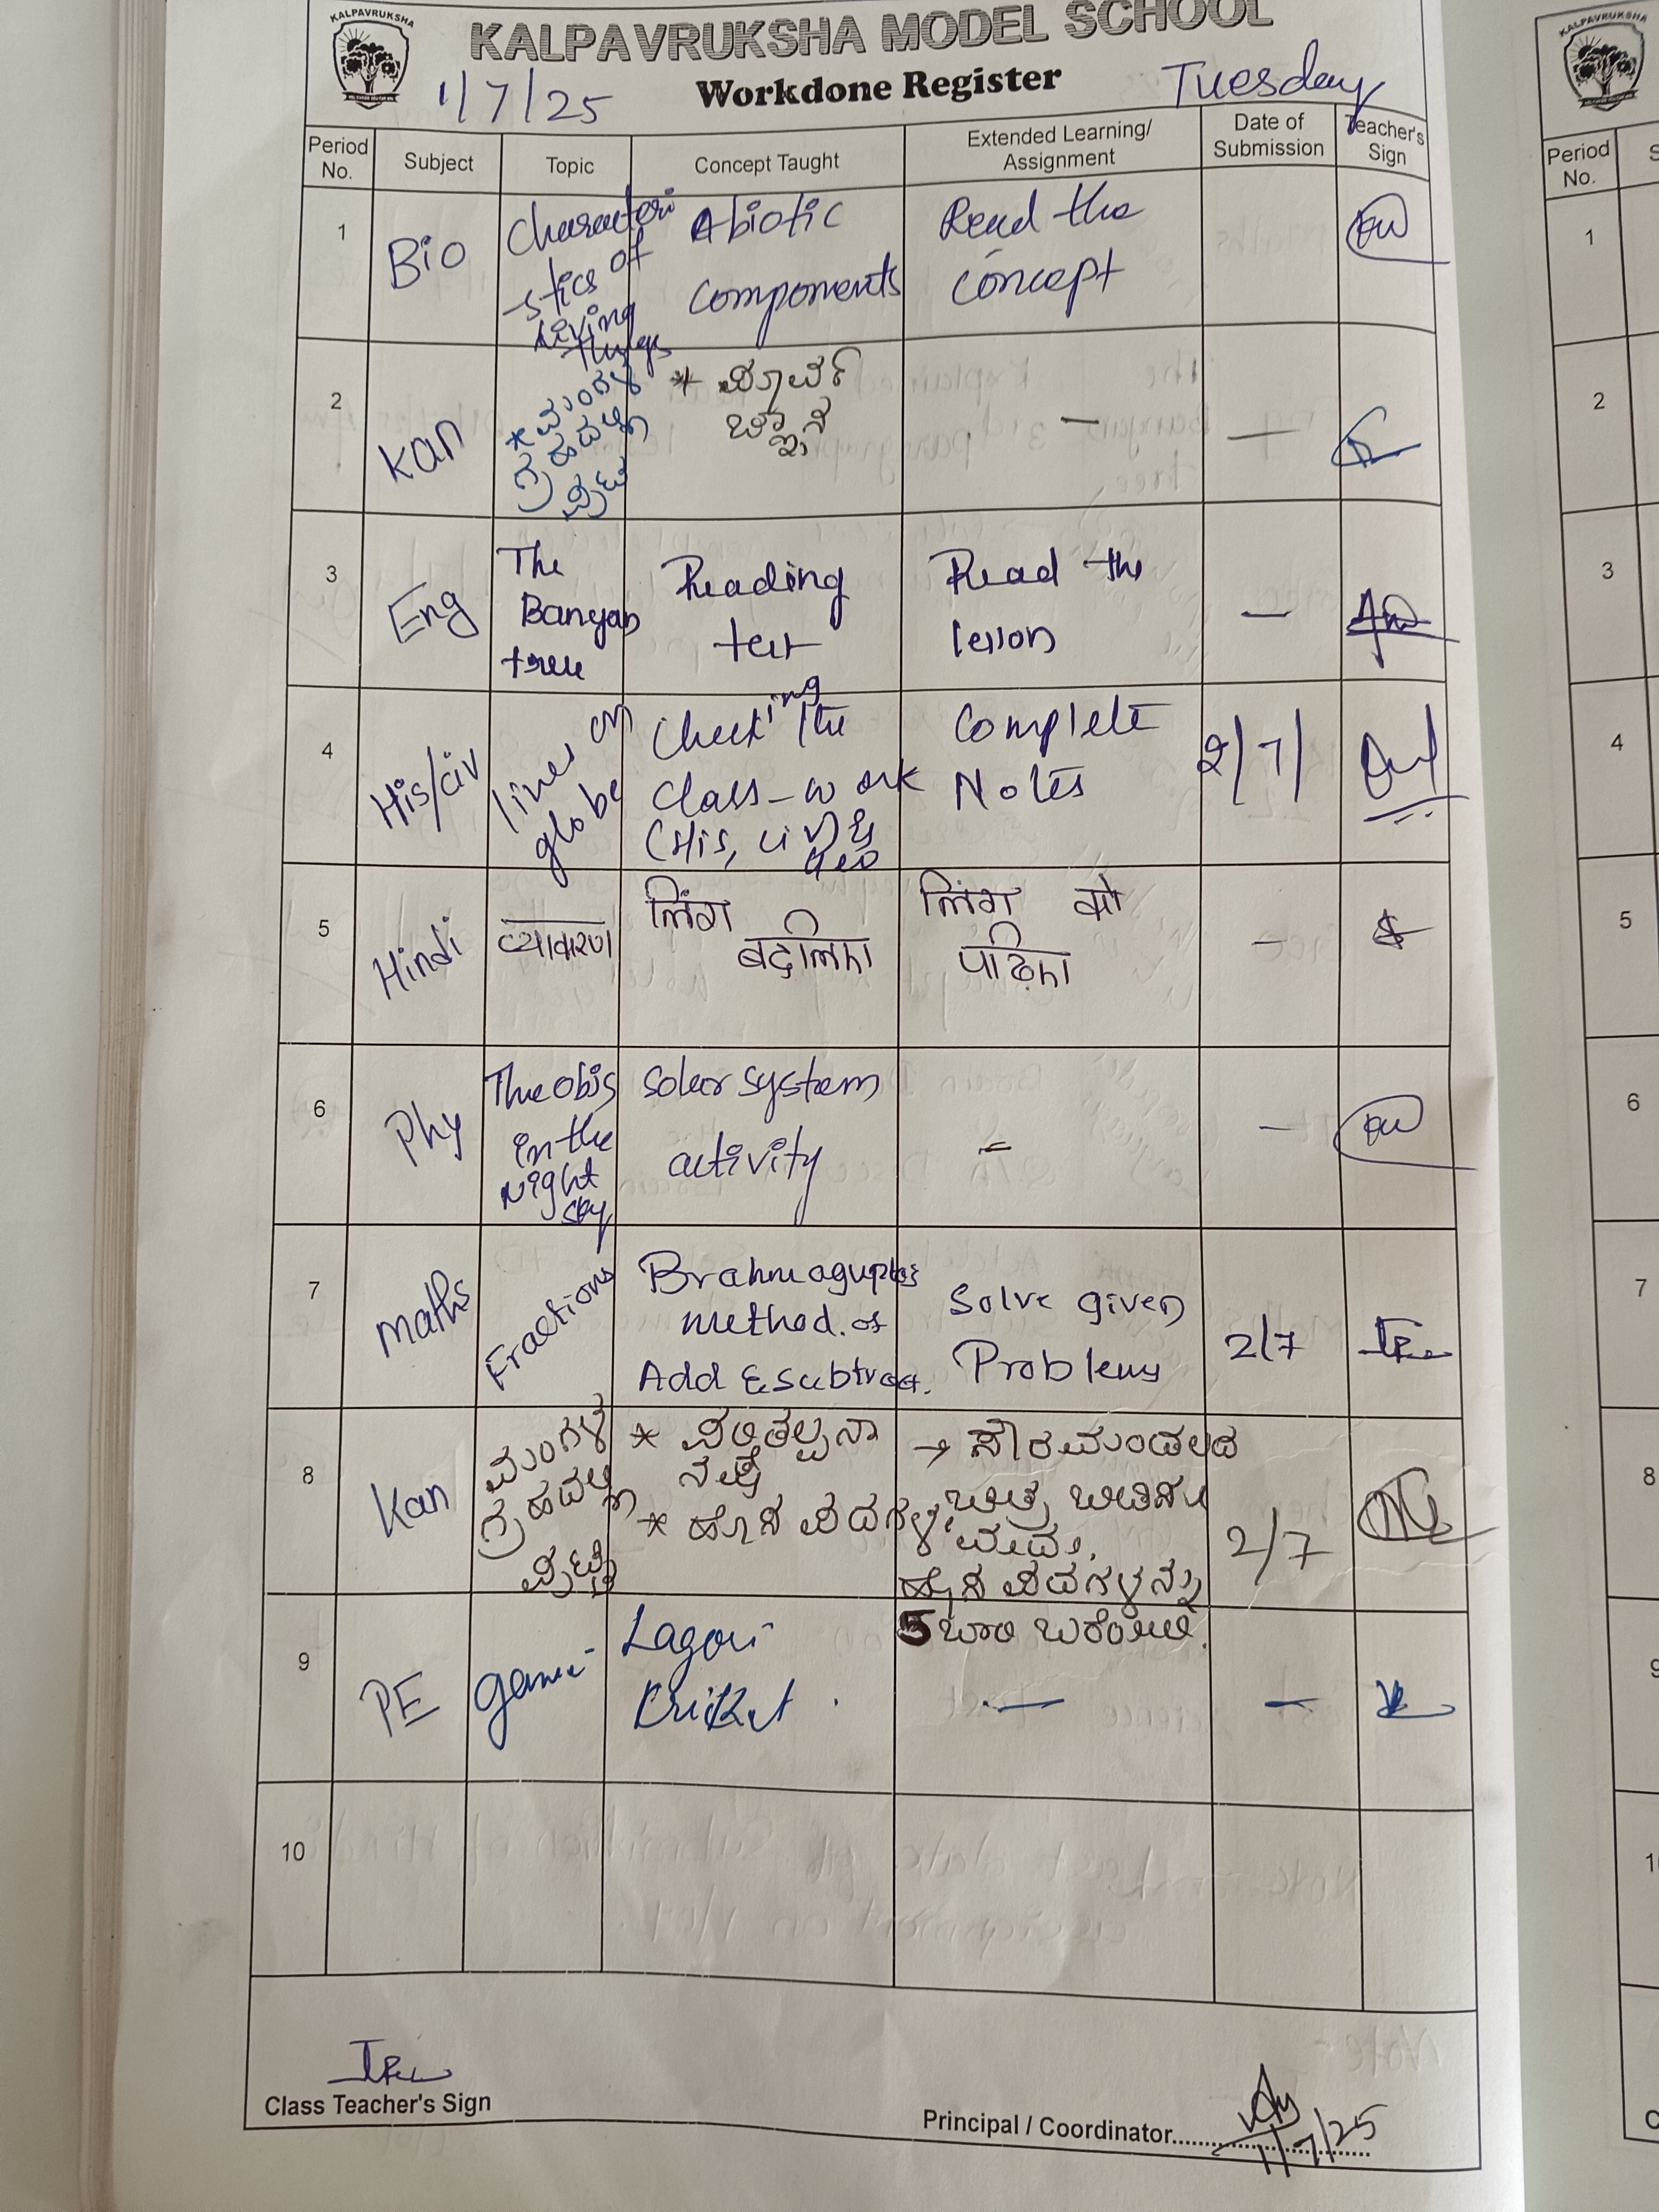 KALPAVRUKSHA
KALPAVRUKSHA MODEL SCHOOL
1/7/25 Workdone Register Tuesday
Period No. Subject Topic Concept Taught Extended Learning/ Assignment Date of Submission Teacher's Sign
1 Bio Characteri -stics of Living things Abiotic components Read the concept
2 Kan * ಮಂಗಳ ಗ್ರಹದಲ್ಲಿ ಪುಟ್ಟಿ * ಪೂರ್ವ ಜ್ಞಾನ — —
3 Eng The Banyan tree Reading test Read the lesson —
4 His/civ lines on globe Checking the class-work (His, civ) & Geo Complete Notes 2/7/
5 Hindi व्याकरण लिंग बदलिए लिंग को पढ़िए —
6 Phy The obj's in the night sky solar system activity — —
7 Maths Fractions Brahmagupta's method of Add & subtrac. Solve given Problems 2/7
8 Kan ಮಂಗಳ ಗ್ರಹದಲ್ಲಿ ಪುಟ್ಟಿ * ಪರಿಕಲ್ಪನಾ ನಕ್ಷೆ * ಹೊಸ ಪದಗಳು → ಸೌರಮಂಡಲದ ಚಿತ್ರ ಬಿಡಿಸು ಹೊಸ ಪದಗಳನ್ನು 5 ಬಾರಿ ಬರೆಯಿರಿ. 2/7
9 PE game Lagori Cricket. — —
10
Class Teacher's Sign
Principal / Coordinator
1/7/25
KALPAVRUKSHA
Period No.
1
2
3
4
5
6
7
8